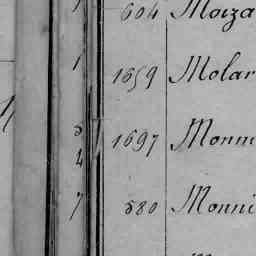 604 Moiza
1
1659 Molar
5
1697 Monn
4
7 580 Monni